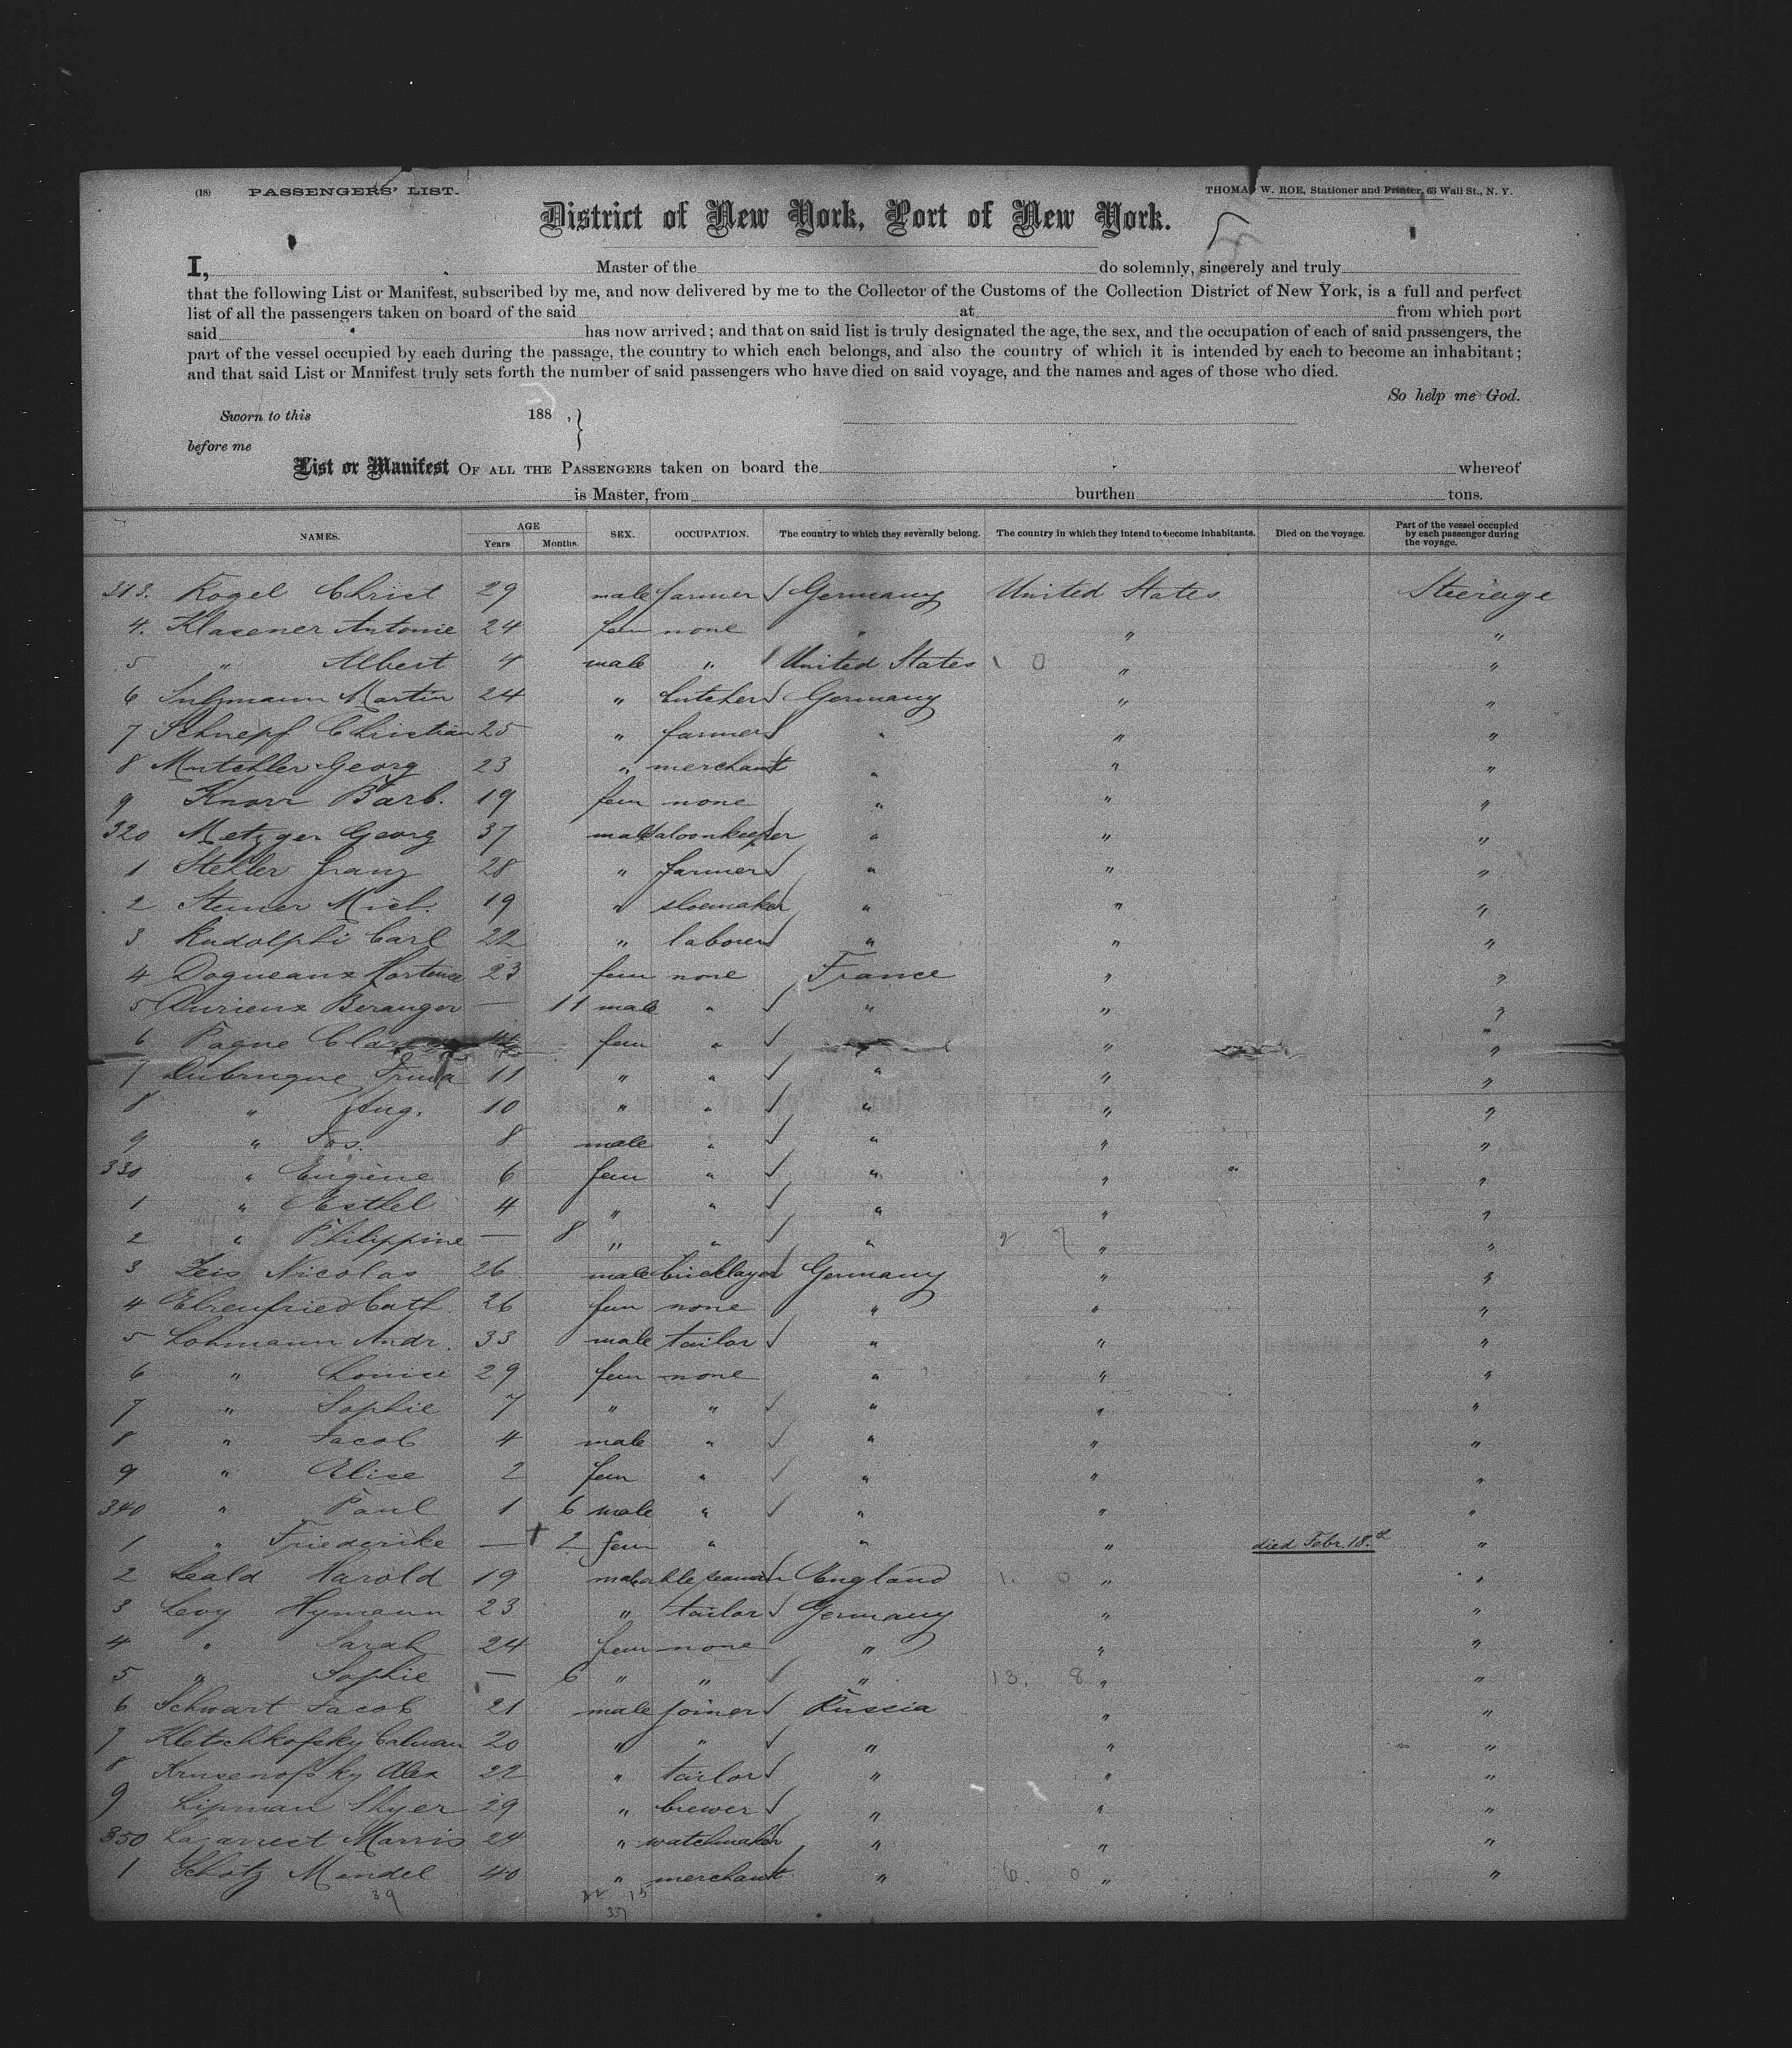 (18) PASSENGERS' LIST. THOMAS W. ROE, Stationer and Printer, 63 Wall St., N. Y.
District of New York, Port of New York.
I, Master of the do solemnly, sincerely and truly
that the following List or Manifest, subscribed by me, and now delivered by me to the Collector of the Customs of the Collection District of New York, is a full and perfect
list of all the passengers taken on board of the said at from which port
said has now arrived; and that on said list is truly designated the age, the sex, and the occupation of each of said passengers, the
part of the vessel occupied by each during the passage, the country to which each belongs, and also the country of which it is intended by each to become an inhabitant;
and that said List or Manifest truly sets forth the number of said passengers who have died on said voyage, and the names and ages of those who died.
So help me God.
Sworn to this 188 , }
before me
List or Manifest OF ALL THE PASSENGERS taken on board the whereof
is Master, from burthen tons.
NAMES. AGE Years Months. SEX. OCCUPATION. The country to which they severally belong. The country in which they intend to become inhabitants. Died on the voyage. Part of the vessel occupied by each passenger during the voyage.
313. Kogel Christ 29 male farmer Germany United States Steerage
4. Klasener Antonie 24 fem none " " "
5 " Albert 4 male " United States 1 0 " "
6 Sulzmann Martin 24 " butcher Germany " "
7 Schnepf Christian 25 " farmer " " "
8 Mutchler Georg 23 " merchant " " "
9 Knorr Barb. 19 fem none " " "
320 Metzger Georg 37 male saloonkeeper " " "
1 Stehler Franz 28 " farmer " " "
2 Steiner Mich. 19 " shoemaker " " "
3 Rudolphi Carl 22 " laborer " " "
4 Doqueaux Hortense 23 fem none France " "
5 Durieux Beranger — 11 male " " " "
6 Pagne fem " " "
7 Dubruque 11 " " " " "
8 " Aug. 10 " " " " "
9 " Jos. 8 male " " " "
330 " Eugène 6 fem " " " "
1 " Esthel 4 " " " " "
2 " Philippine — 8 " " " 2 7 " "
3 Zeis Nicolas 26 male bricklayer Germany " "
4 Ehrenfried Cath. 26 fem none " " "
5 Lohmann Andr. 33 male tailor " " "
6 " Louise 29 fem none " " "
7 " Sophie 7 " " " " "
8 " Jacob 4 male " " " "
9 " Elise 2 fem " " " "
340 " Paul 1 6 male " " " "
1 " Friederike — † 2 fem " " " died Febr. 18.th "
2 Leald Harold 19 male able seaman England 1. 0 " "
3 Levy Hymann 23 " tailor Germany " "
4 " Sarah 24 fem none " " "
5 " Sophie — 6 " " " 13. 8 " "
6 Schwart Jacob 21 male joiner Russia " "
7 Kletschkofsky Calman 20 " " " " "
8 Krusenofsky Alex 22 " tailor " " "
9 Lipman 29 " brewer " " "
350 Morris 24 " watchmaker " " "
1 Schotz Mendel 40 " merchant " 6. 0 " "
39 22 15
37